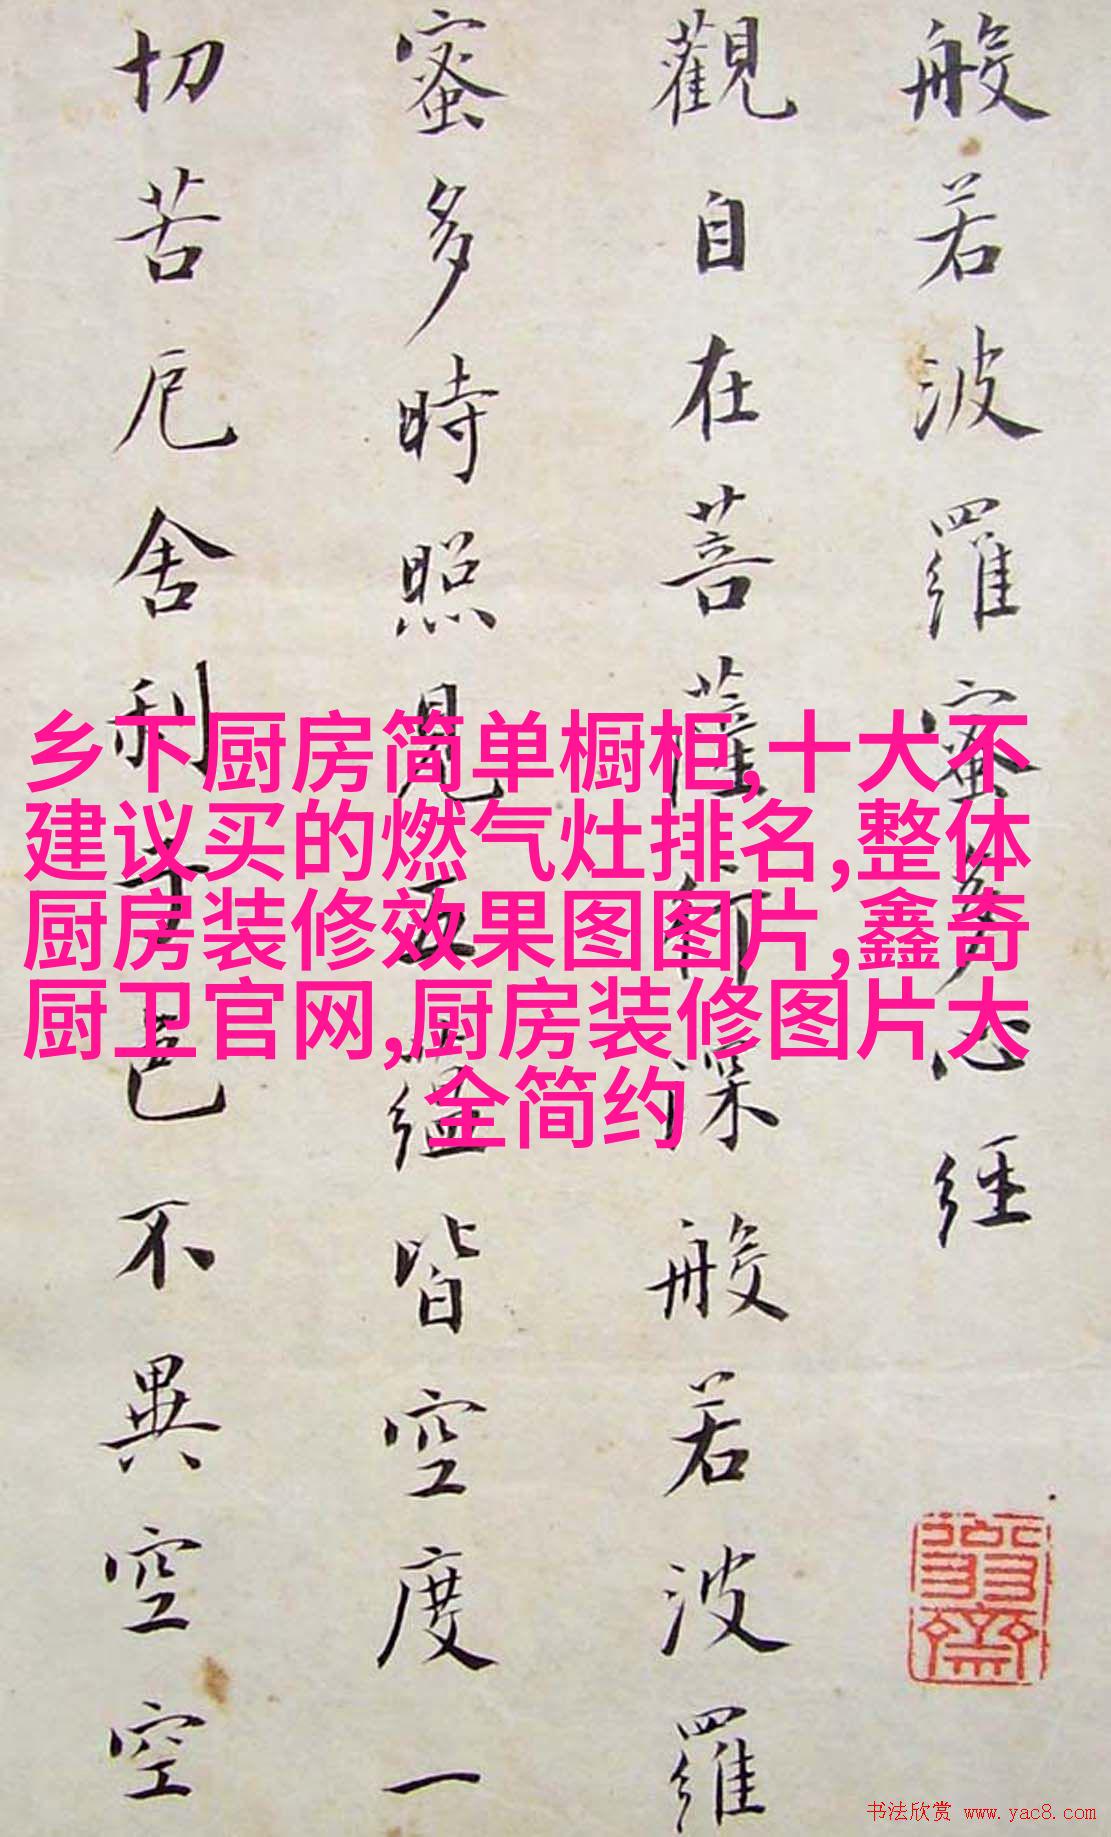 般若波羅蜜多心經
觀自在菩薩行深般若波羅
蜜多時照見五蘊皆空度一
切苦厄舍利子色不異空空
乡下厨房简单橱柜,十大不
建议买的燃气灶排名,整体
厨房装修效果图图片,鑫奇
厨卫官网,厨房装修图片大
全简约
书法欣赏 www.yac8.com